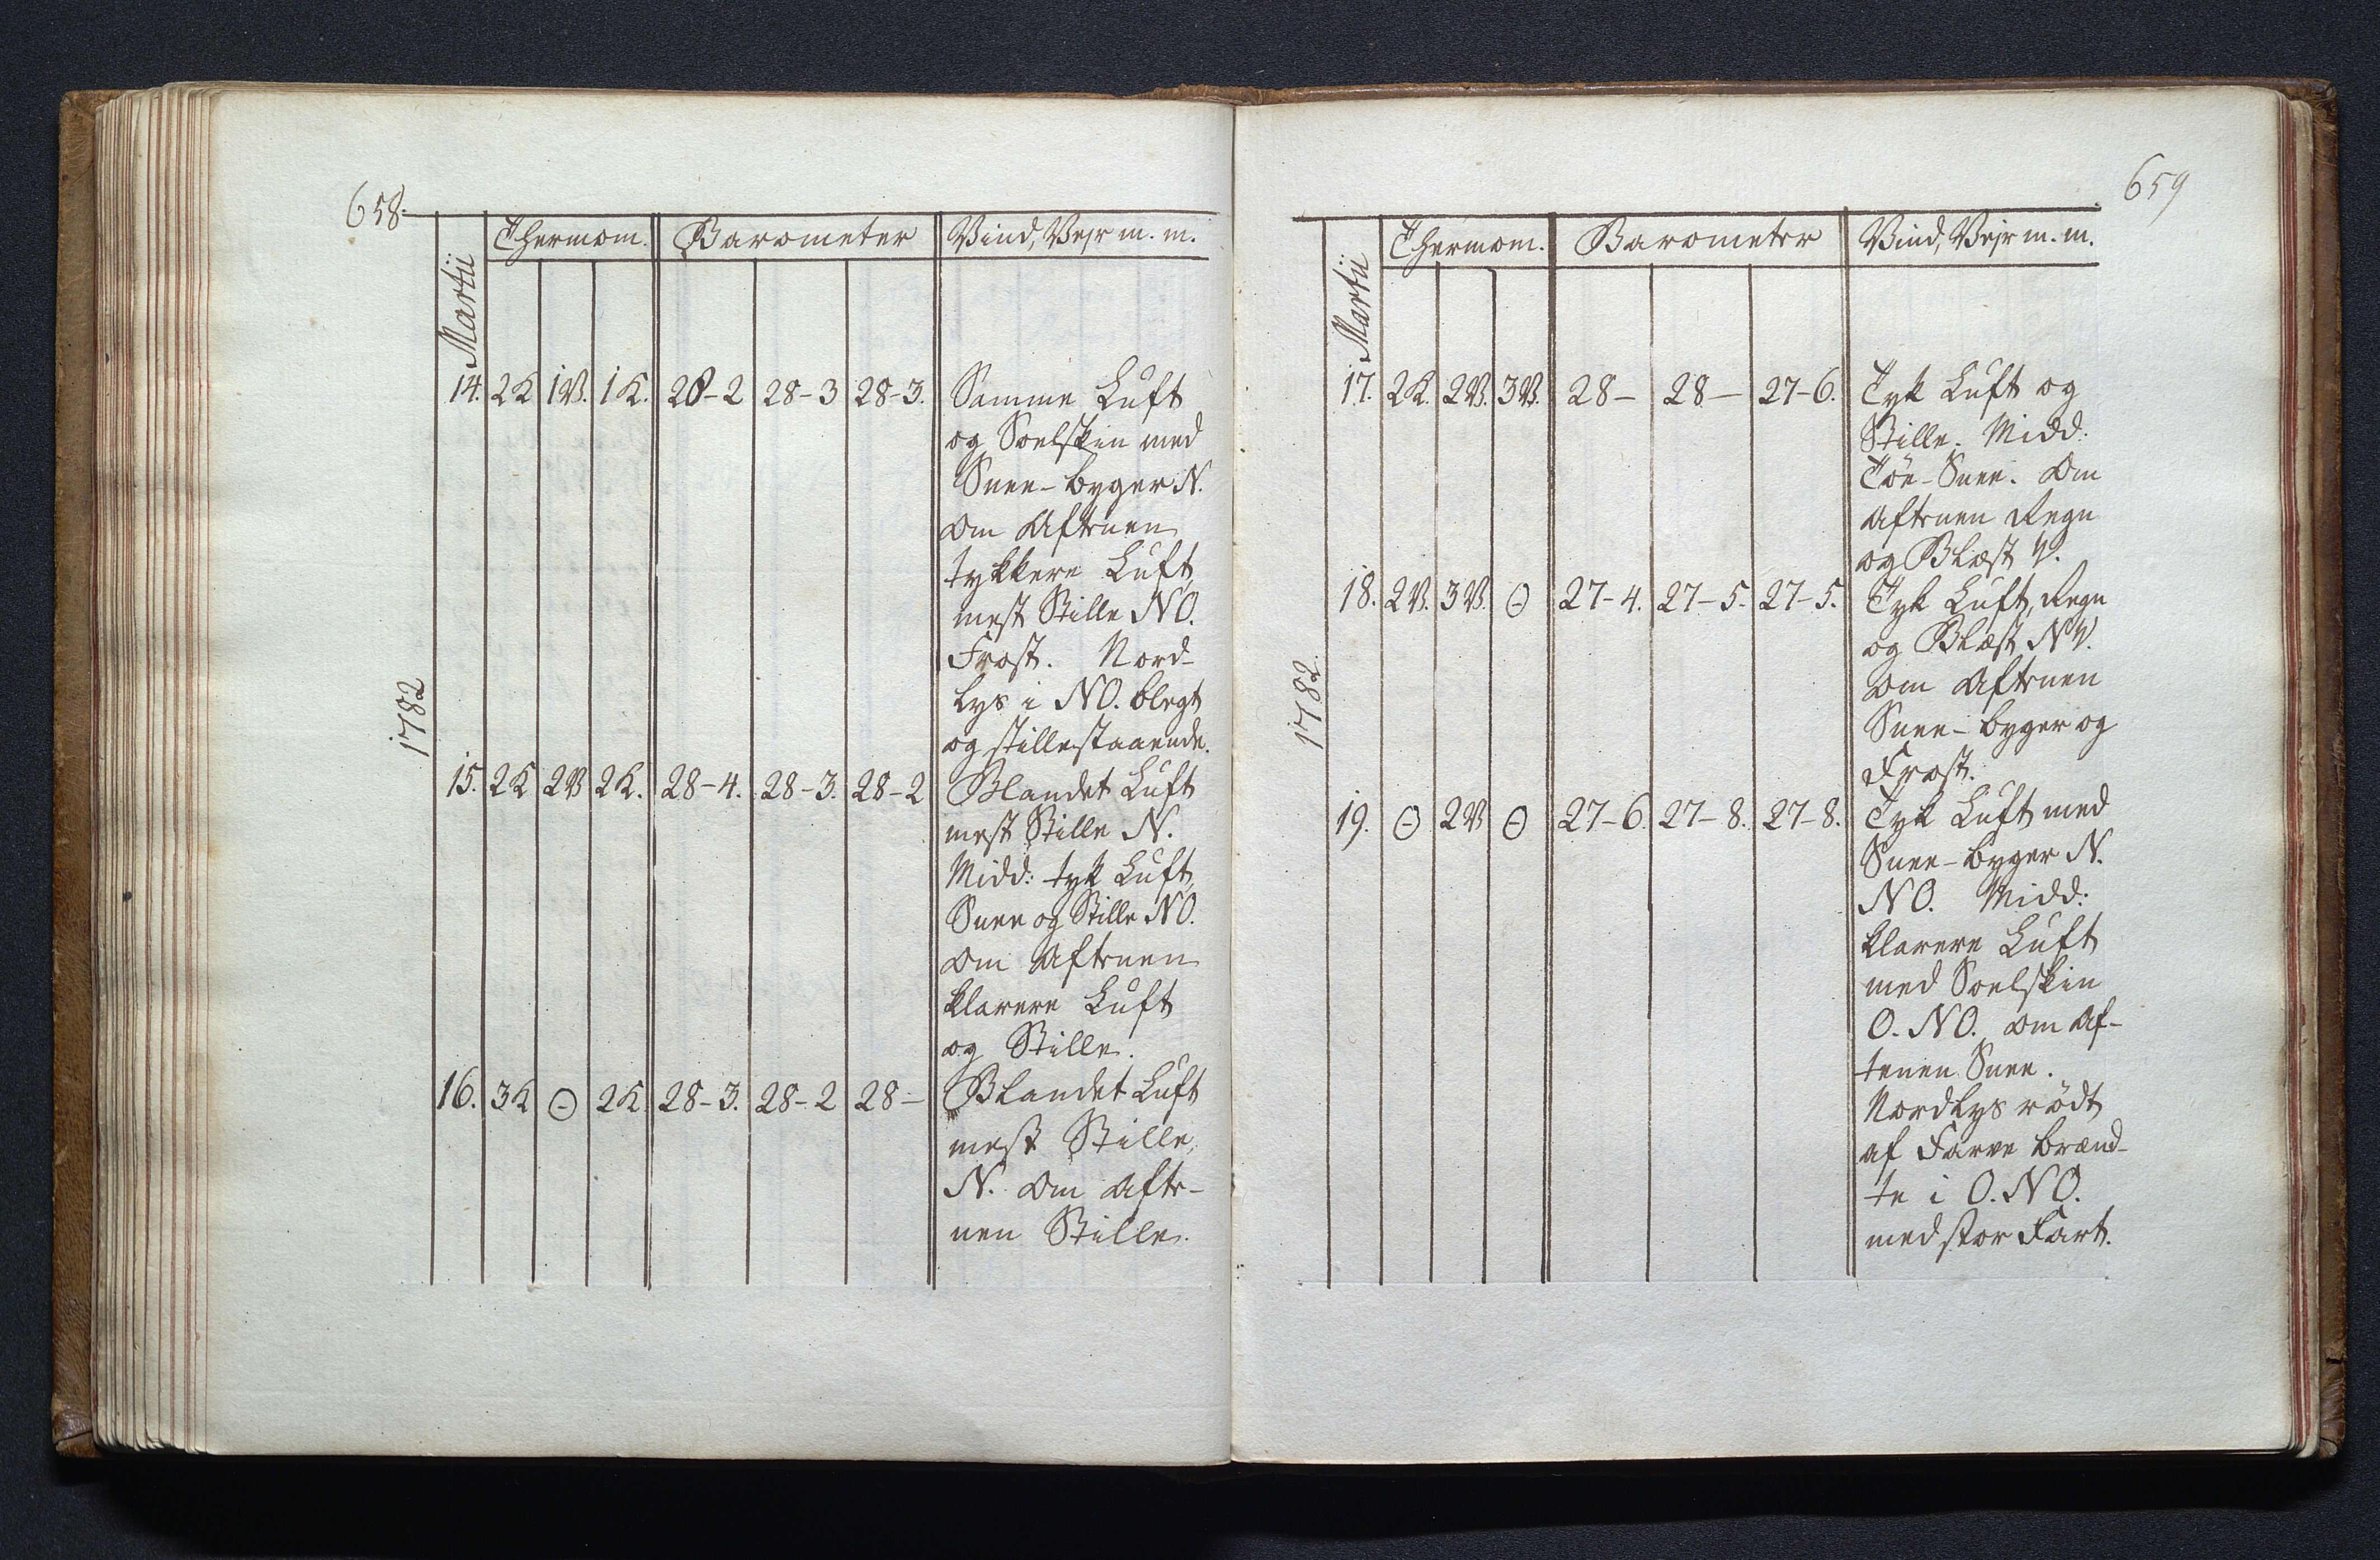 658.
Thermom. Barometer Vind, Vejr m. m.
Martii
1782
14. 2K 1V. 1K. 28-2 28-3 28-3. Samme Luft
og Soelskin med
Snee-byger N.
Om Aftenen
tykkere Luft,
mest Stille NO.
Frost. Nord-
lys i NO. blegt
og stillestaaende.
15. 2K 2V 2K. 28-4. 28-3. 28-2 Blandet Luft
mest Stille N.
Midd: tyk Luft,
Snee og Stille NO.
Om Aftenen
klarere Luft
og Stille.
16. 3K ⊖ 2K 28-3. 28-2 28- Blandet Luft
mest Stille,
N. Om Afte-
nen Stille.
659
Thermom. Barometer Vind, Vejr m. m.
Martii
1782.
17. 2K. 2V. 3V. 28- 28- 27-6. Tyk Luft og
Stille. Midd:
Töe-Snee. Om
Aftenen Regn
og Blæst V.
18. 2V. 3V. ⊖ 27-4. 27-5. 27-5. Tyk Luft, Regn
og Blæst NV.
Om Aftenen
Snee-byger og
Frost.
19. ⊖ 2V ⊖ 27-6. 27-8. 27-8. Tyk Luft med
Snee-byger N.
NO. Midd:
klarere Luft
med Soelskin
O. NO. Om Af-
tenen Snee.
Nordlys rödt
af Farve brænd-
te i O. NO.
med stor Fart.